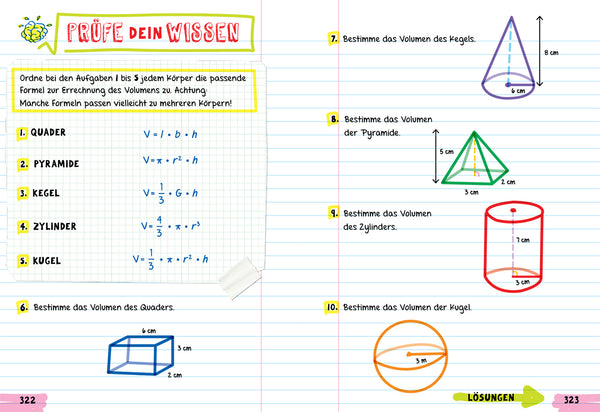 PRÜFE DEIN WISSEN
Ordne bei den Aufgaben 1 bis 5 jedem Körper die passende
Formel zur Errechnung des Volumens zu. Achtung:
Manche Formeln passen vielleicht zu mehreren Körpern!
1. QUADER
V = l • b • h
2. PYRAMIDE
V = π • r² • h
3. KEGEL
V = 1/3 • G • h
4. ZYLINDER
V = 4/3 • π • r³
5. KUGEL
V = 1/3 • π • r² • h
6. Bestimme das Volumen des Quaders.
6 cm
3 cm
2 cm
322
7. Bestimme das Volumen des Kegels.
8 cm
6 cm
8. Bestimme das Volumen
der Pyramide.
5 cm
2 cm
3 cm
9. Bestimme das Volumen
des Zylinders.
7 cm
3 cm
10. Bestimme das Volumen der Kugel.
3 m
LÖSUNGEN
323